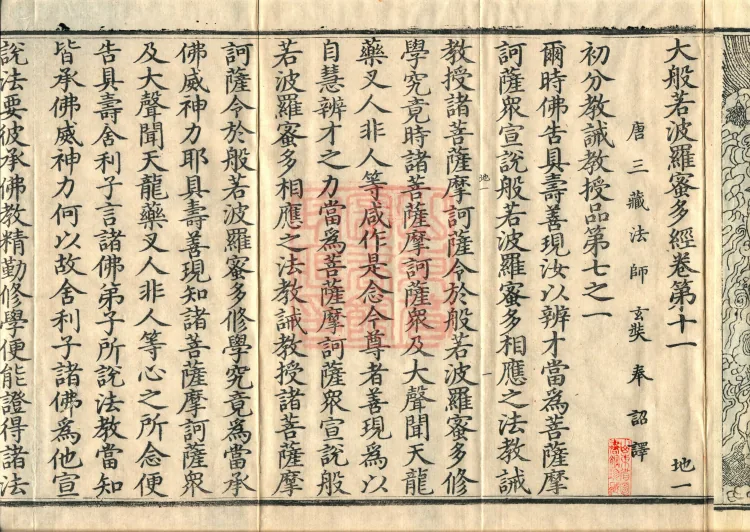 大般若波羅蜜多經卷第十一 地一
唐三藏法師玄奘奉詔譯
初分教誡教授品第七之一
爾時佛告具壽善現汝以辨才當為菩薩摩
訶薩眾宣說般若波羅蜜多相應之法教誡
地一
教授諸菩薩摩訶薩令於般若波羅蜜多修
學究竟時諸菩薩摩訶薩眾及大聲聞天龍
藥叉人非人等咸作是念今尊者善現為以
自慧辨才之力當為菩薩摩訶薩眾宣說般
若波羅蜜多相應之法教誡教授諸菩薩摩
訶薩令於般若波羅蜜多修學究竟為當承
佛威神力耶具壽善現知諸菩薩摩訶薩眾
及大聲聞天龍藥叉人非人等心之所念便
告具壽舍利子言諸佛弟子所說法教當知
皆承佛威神力何以故舍利子諸佛為他宣
說法要彼承佛教精勤修學便能證得諸法